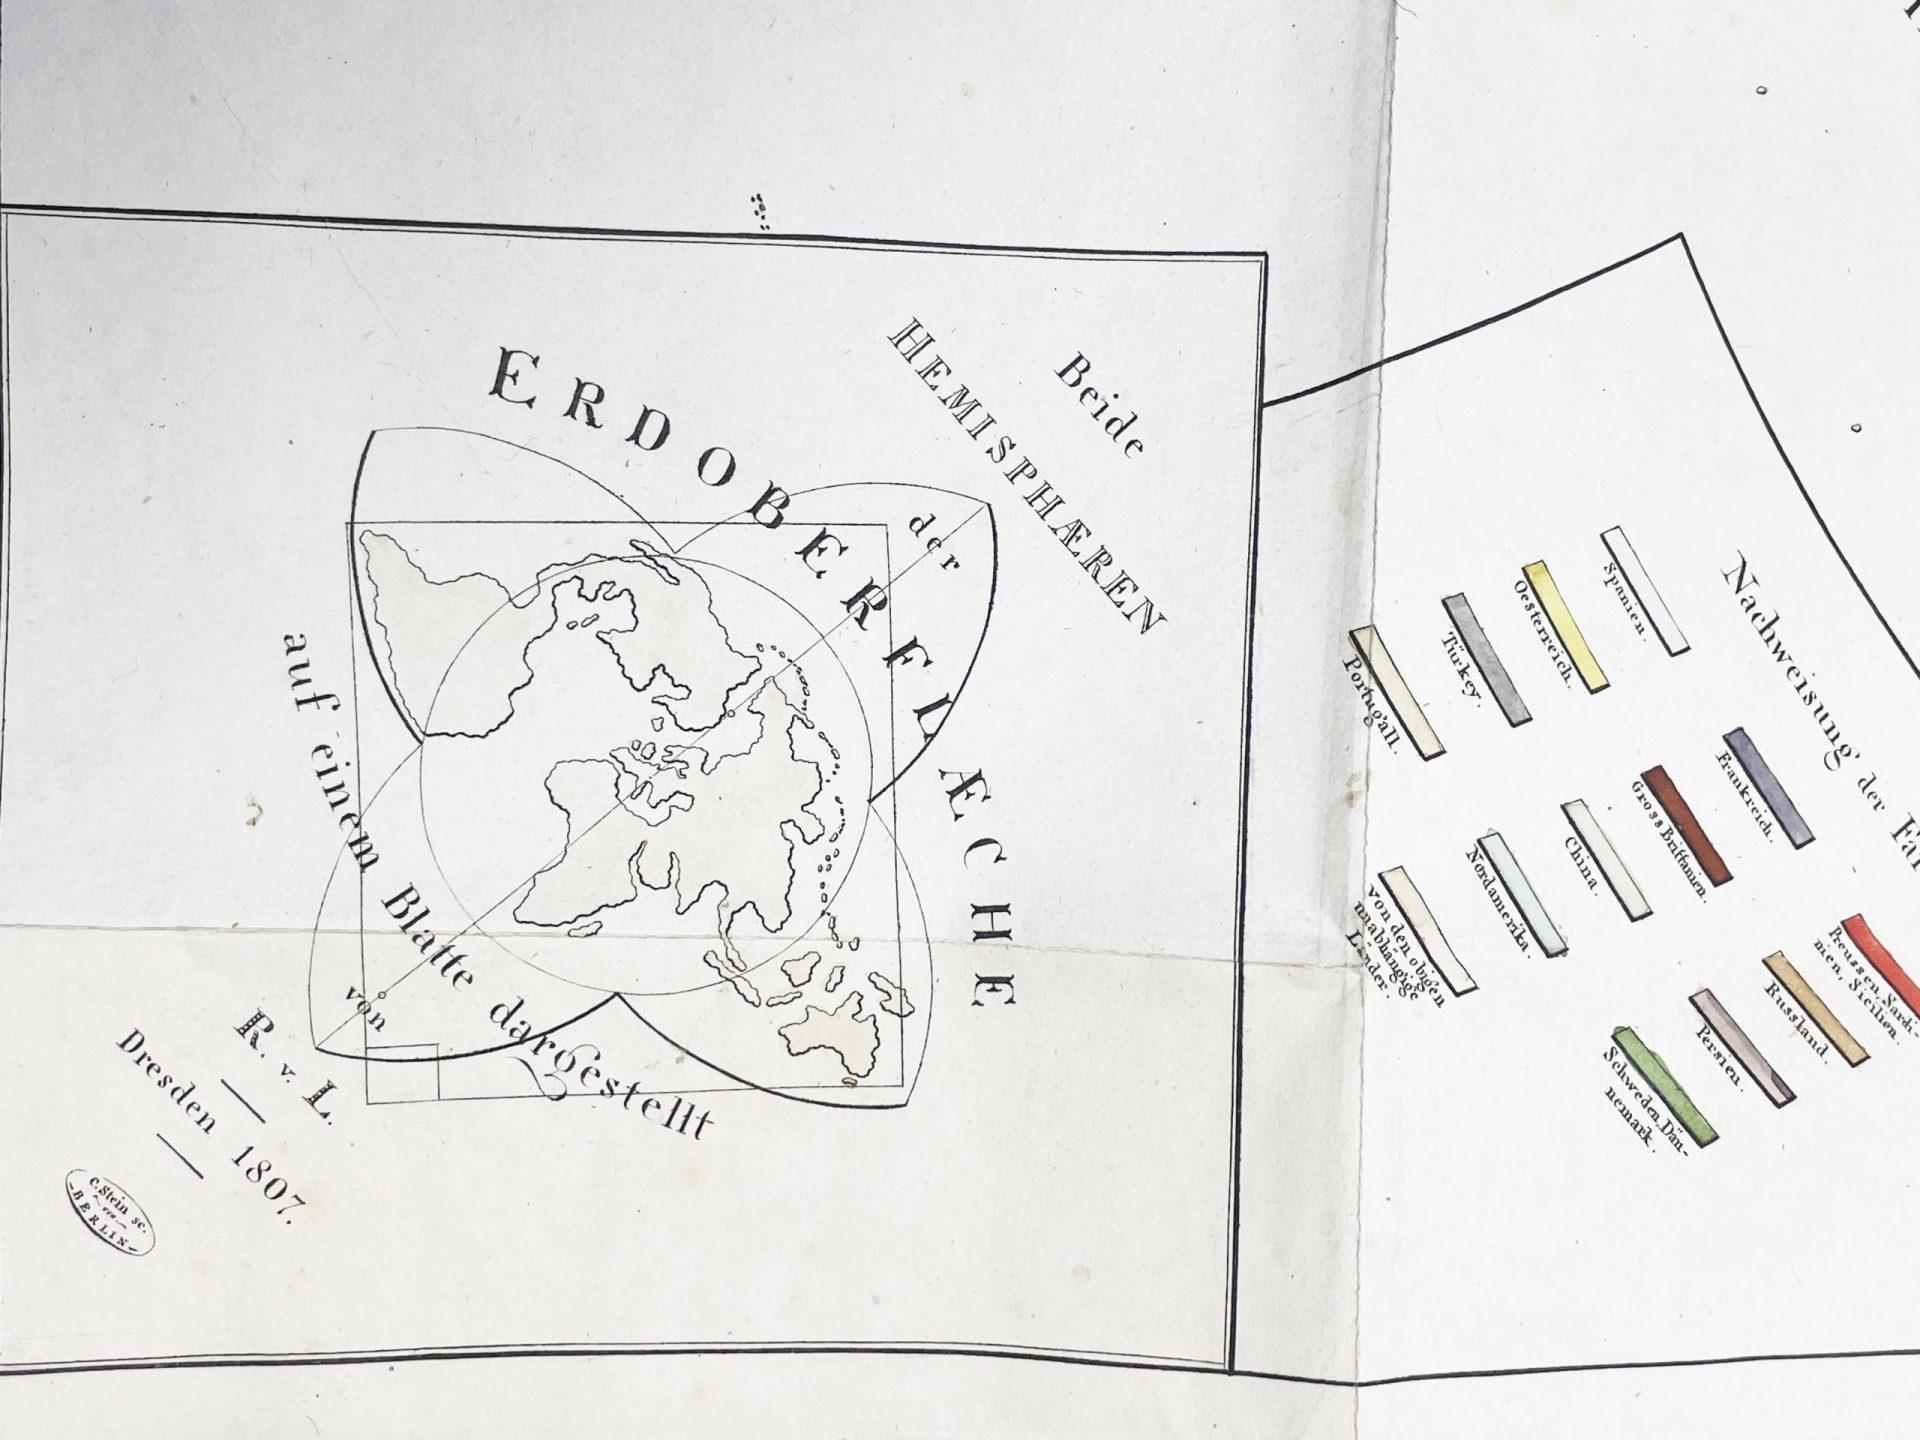 Beide
HEMISPHÆREN
der
ERDOBERFLÆCHE
auf einem Blatte dargestellt
von
R. v. L.
Dresden 1807.
C. Stein sc.
BERLIN
Nachweisung der
Spanien.
Oesterreich.
Türkey.
Portugall.
Frankreich.
Gross Brittanien.
China.
Nordamerika.
von den obigen
unabhängige
Länder.
Preussen, Sardi-
nien, Sicilien.
Russland.
Persien.
Schweden, Dän-
nemark.